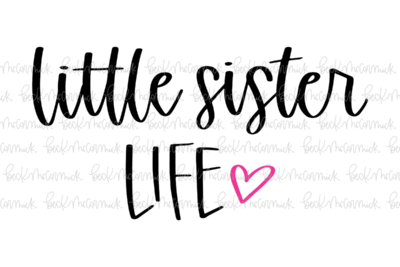 little sister
LIFE